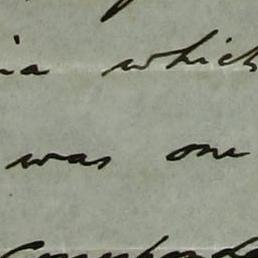 ia which
was one